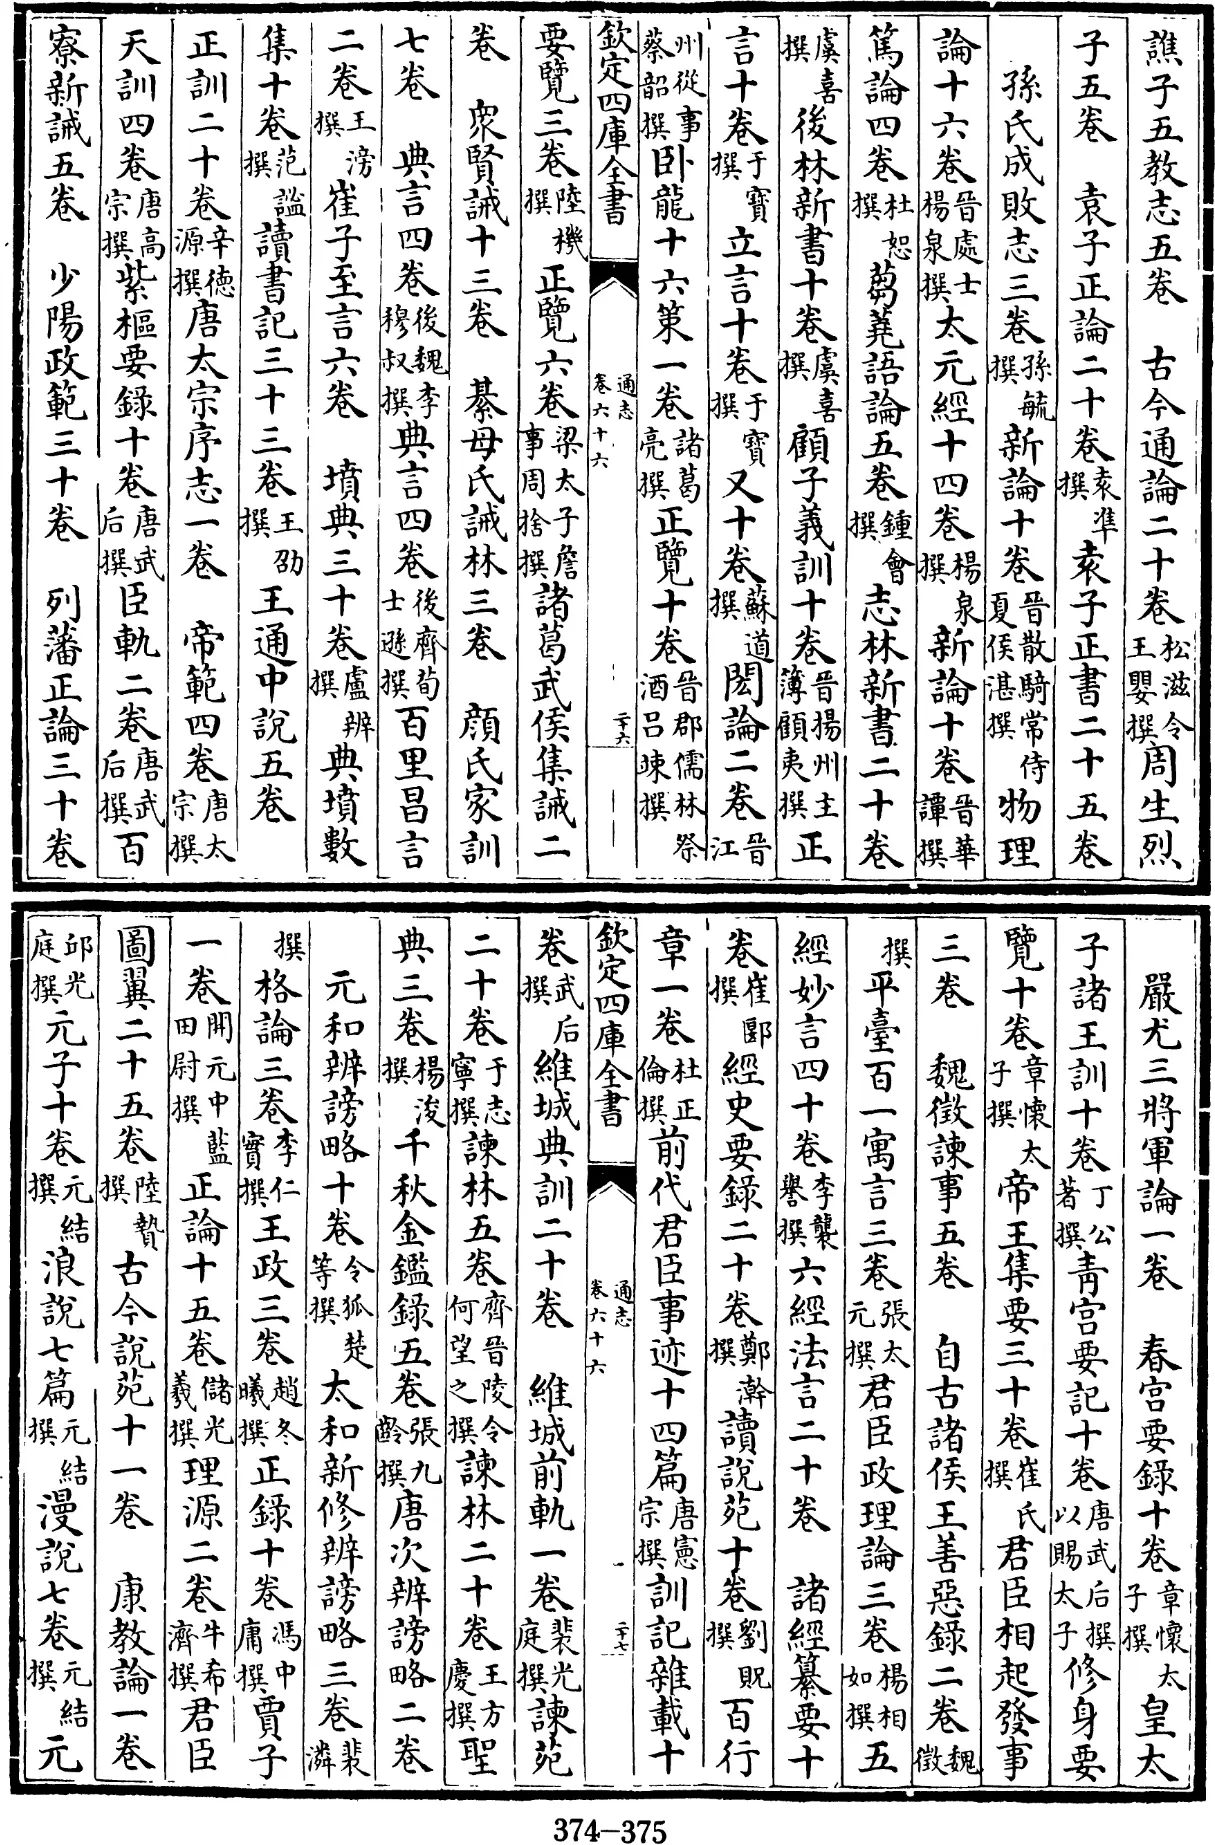 譙子五教志五卷　古今通論二十卷松滋令王嬰撰周生烈
子五卷　袁子正論二十卷袁準撰袁子正書二十五卷
孫氏成敗志三卷孫毓撰新論十卷晉散騎常侍夏侯湛撰物理
論十六卷晉處士楊泉撰太元經十四卷楊泉撰新論十卷晉華譚撰
篤論四卷杜恕撰芻蕘語論五卷鍾會撰志林新書二十卷
虞喜撰後林新書十卷虞喜撰顧子義訓十卷晉揚州主簿顧夷撰正
言十卷于寶撰立言十卷于寶撰又十卷蘇道撰閎論二卷晉江
州從事蔡韶撰卧龍十六第一卷諸葛亮撰正覽十卷晉郡儒林祭酒呂竦撰
欽定四庫全書　通志卷六十六　二十六
要覽三卷陸機撰正覽六卷梁太子詹事周捨撰諸葛武侯集誡二
卷　眾賢誡十三卷　綦母氏誡林三卷　顏氏家訓
七卷　典言四卷後魏李穆叔撰典言四卷後齊荀士遜撰百里昌言
二卷王滂撰崔子至言六卷　墳典三十卷盧辨撰典墳數
集十卷范謐撰讀書記三十三卷王劭撰王通中說五卷
正訓二十卷辛德源撰唐太宗序志一卷　帝範四卷唐太宗撰
天訓四卷唐高宗撰紫樞要錄十卷唐武后撰臣軌二卷唐武后撰百
寮新誡五卷　少陽政範三十卷　列藩正論三十卷
嚴尤三將軍論一卷　春宮要錄十卷章懷太子撰皇太
子諸王訓十卷丁公著撰青宮要記十卷唐武后撰以賜太子修身要
覽十卷章懷太子撰帝王集要三十卷崔氏撰君臣相起發事
三卷　魏徵諫事五卷　自古諸侯王善惡錄二卷魏徵
撰平臺百一寓言三卷張太元撰君臣政理論三卷楊相如撰五
經妙言四十卷李襲譽撰六經法言二十卷　諸經纂要十
卷崔郾撰經史要錄二十卷鄭澣撰讀說苑十卷劉貺撰百行
章一卷杜正倫撰前代君臣事迹十四篇唐憲宗撰訓記雜載十
欽定四庫全書　通志卷六十六　二十七
卷武后撰維城典訓二十卷　維城前軌一卷裴光庭撰諫苑
二十卷于志寧撰諫林五卷齊晉陵令何望之撰諫林二十卷王方慶撰聖
典三卷楊浚撰千秋金鑑錄五卷張九齡撰唐次辨謗略二卷
元和辨謗略十卷令狐楚等撰太和新修辨謗略三卷裴潾
撰格論三卷李仁實撰王政三卷趙冬曦撰正錄十卷馮中庸撰賈子
一卷開元中藍田尉撰正論十五卷儲光羲撰理源二卷牛希濟撰君臣
圖翼二十五卷陸贄撰古今說苑十一卷　康教論一卷
邱光庭撰元子十卷元結撰浪說七篇元結撰漫說七卷元結撰元
374-375